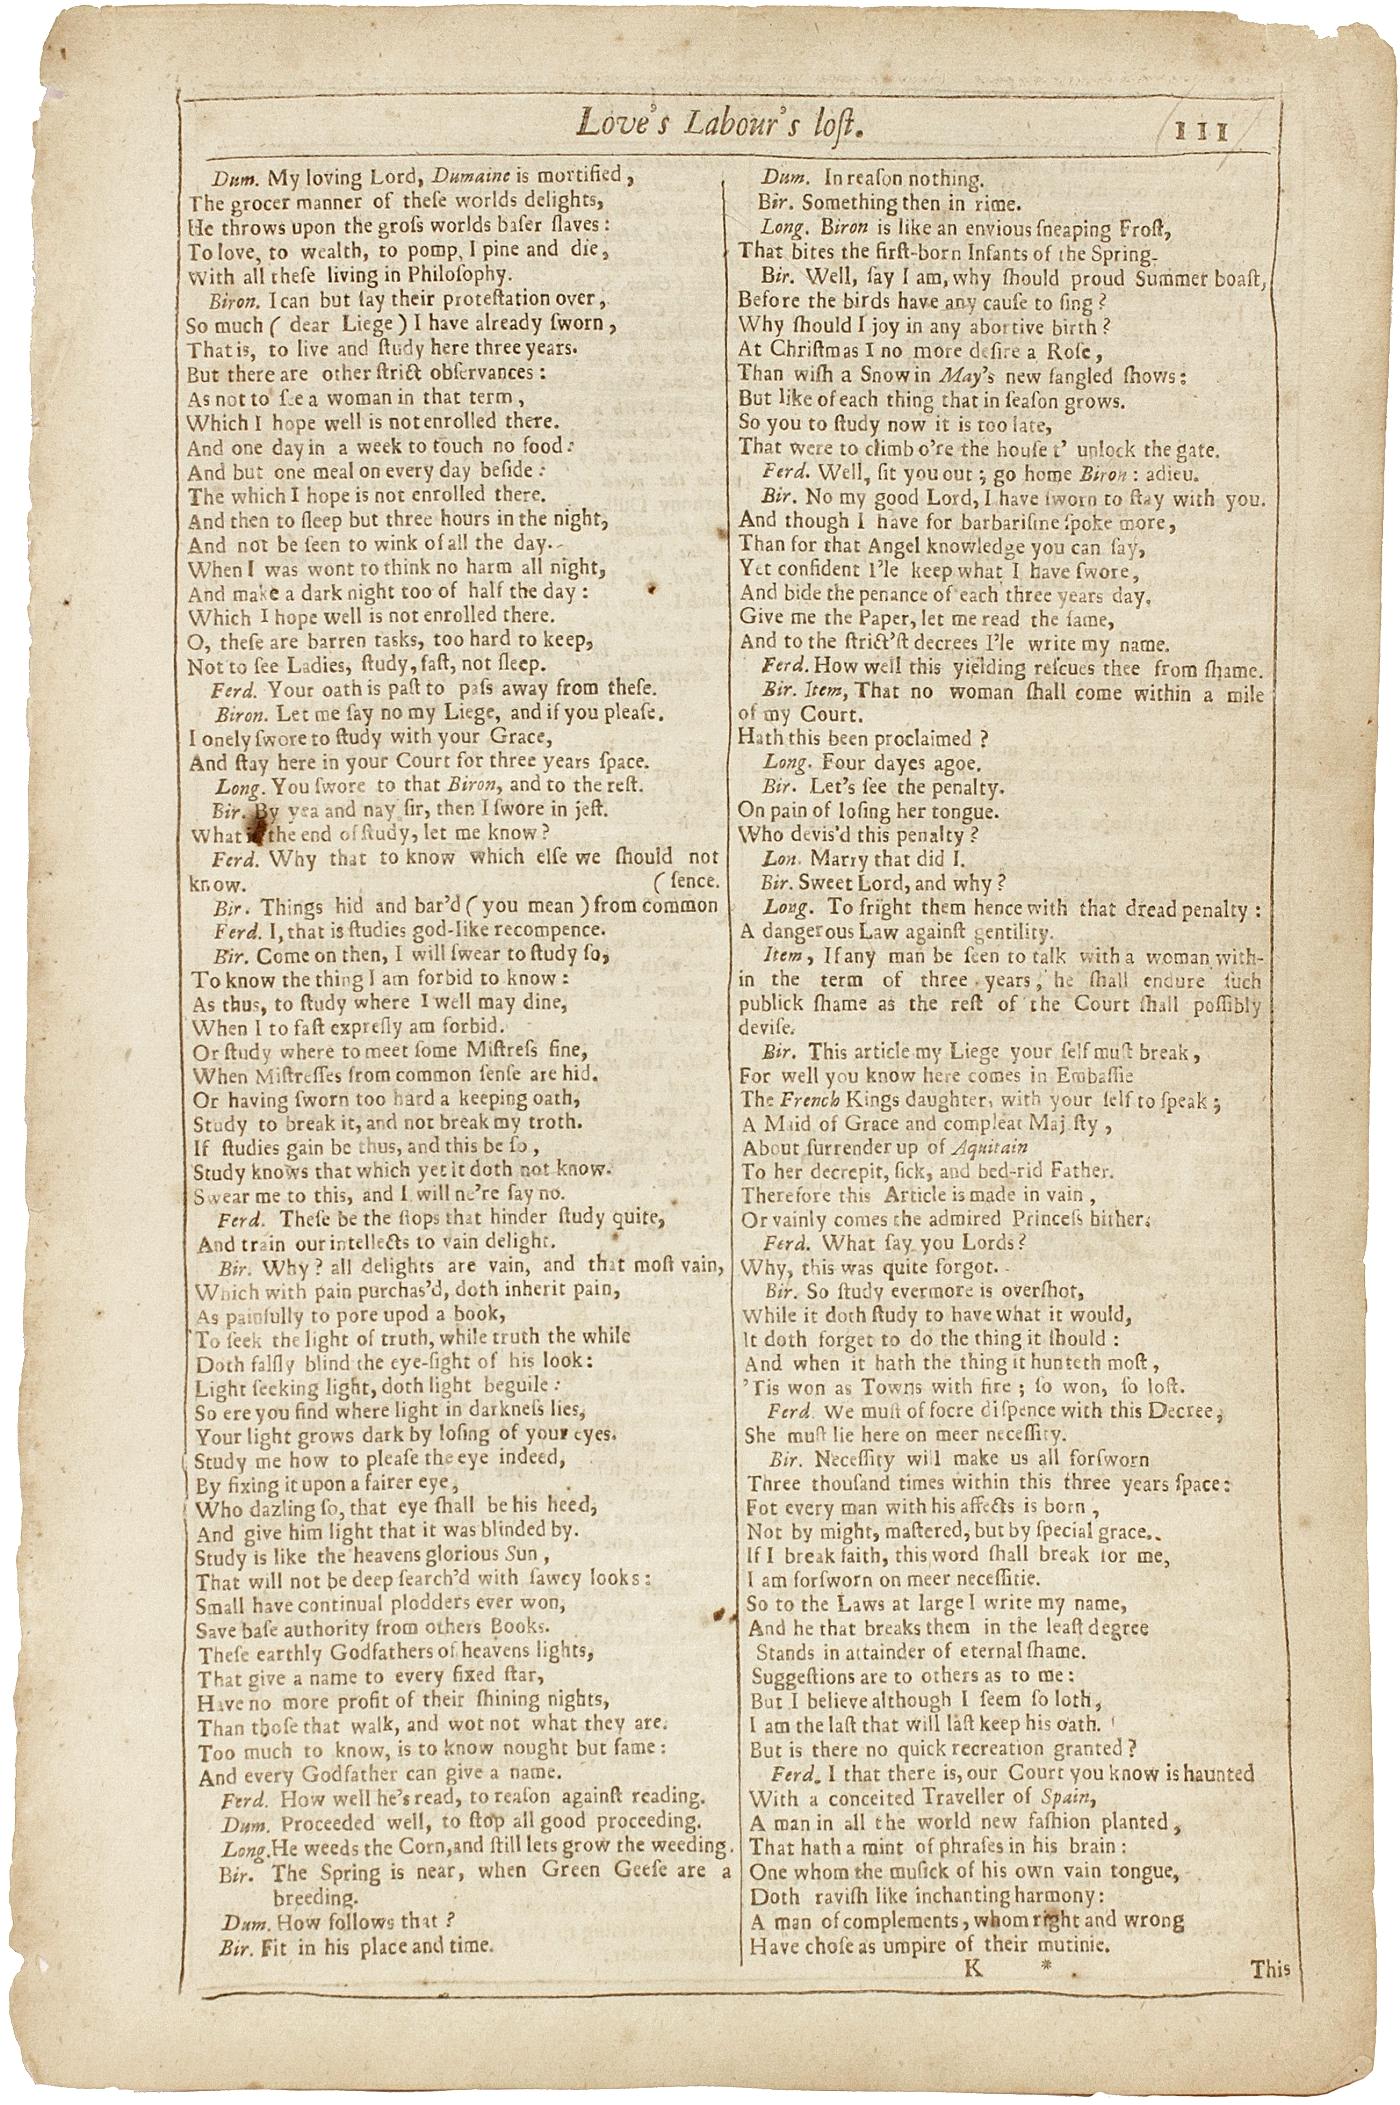 Love's Labour's loſt.
111
Dum. My loving Lord, Dumaine is mortified,
The grocer manner of theſe worlds delights,
He throws upon the groſs worlds baſer ſlaves:
To love, to wealth, to pomp, I pine and die,
With all theſe living in Philoſophy.
Biron. I can but ſay their proteſtation over,
So much ( dear Liege ) I have already ſworn,
That is, to live and ſtudy here three years.
But there are other ſtrict obſervances:
As not to ſee a woman in that term,
Which I hope well is not enrolled there.
And one day in a week to touch no food:
And but one meal on every day beſide:
The which I hope is not enrolled there.
And then to ſleep but three hours in the night,
And not be ſeen to wink of all the day.
When I was wont to think no harm all night,
And make a dark night too of half the day:
Which I hope well is not enrolled there.
O, theſe are barren tasks, too hard to keep,
Not to ſee Ladies, ſtudy, faſt, not ſleep.
Ferd. Your oath is paſt to paſs away from theſe.
Biron. Let me ſay no my Liege, and if you pleaſe.
I onely ſwore to ſtudy with your Grace,
And ſtay here in your Court for three years ſpace.
Long. You ſwore to that Biron, and to the reſt.
Bir. By yea and nay ſir, then I ſwore in jeſt.
What is the end of ſtudy, let me know?
Ferd. Why that to know which elſe we ſhould not
know. ( ſence.
Bir. Things hid and bar'd ( you mean ) from common
Ferd. I, that is ſtudies god-like recompence.
Bir. Come on then, I will ſwear to ſtudy ſo,
To know the thing I am forbid to know:
As thus, to ſtudy where I well may dine,
When I to faſt expreſly am forbid.
Or ſtudy where to meet ſome Miſtreſs fine,
When Miſtreſſes from common ſenſe are hid.
Or having ſworn too hard a keeping oath,
Study to break it, and not break my troth.
If ſtudies gain be thus, and this be ſo,
Study knows that which yet it doth not know.
Swear me to this, and I will ne're ſay no.
Ferd. Theſe be the ſtops that hinder ſtudy quite,
And train our intellects to vain delight.
Bir. Why? all delights are vain, and that moſt vain,
Which with pain purchas'd, doth inherit pain,
As painfully to pore upod a book,
To ſeek the light of truth, while truth the while
Doth falſly blind the eye-ſight of his look:
Light ſeeking light, doth light beguile:
So ere you find where light in darkneſs lies,
Your light grows dark by loſing of your eyes.
Study me how to pleaſe the eye indeed,
By fixing it upon a fairer eye,
Who dazling ſo, that eye ſhall be his heed,
And give him light that it was blinded by.
Study is like the heavens glorious Sun,
That will not be deep ſearch'd with ſawcy looks:
Small have continual plodders ever won,
Save baſe authority from others Books.
Theſe earthly Godfathers of heavens lights,
That give a name to every fixed ſtar,
Have no more profit of their ſhining nights,
Than thoſe that walk, and wot not what they are.
Too much to know, is to know nought but fame:
And every Godfather can give a name.
Ferd. How well he's read, to reaſon againſt reading.
Dum. Proceeded well, to ſtop all good proceeding.
Long. He weeds the Corn, and ſtill lets grow the weeding.
Bir. The Spring is near, when Green Geeſe are a
breeding.
Dum. How follows that?
Bir. Fit in his place and time.
Dum. In reaſon nothing.
Bir. Something then in rime.
Long. Biron is like an envious ſneaping Froſt,
That bites the firſt-born Infants of the Spring.
Bir. Well, ſay I am, why ſhould proud Summer boaſt,
Before the birds have any cauſe to ſing?
Why ſhould I joy in any abortive birth?
At Chriſtmas I no more deſire a Roſe,
Than wiſh a Snow in May's new fangled ſhows:
But like of each thing that in ſeaſon grows.
So you to ſtudy now it is too late,
That were to climb o're the houſe t' unlock the gate.
Ferd. Well, ſit you out; go home Biron: adieu.
Bir. No my good Lord, I have ſworn to ſtay with you.
And though I have for barbariſme ſpoke more,
Than for that Angel knowledge you can ſay,
Yet confident I'le keep what I have ſwore,
And bide the penance of each three years day.
Give me the Paper, let me read the ſame,
And to the ſtrict'ſt decrees I'le write my name.
Ferd. How well this yielding reſcues thee from ſhame.
Bir. Item, That no woman ſhall come within a mile
of my Court.
Hath this been proclaimed?
Long. Four dayes agoe.
Bir. Let's ſee the penalty.
On pain of loſing her tongue.
Who devis'd this penalty?
Lon. Marry that did I.
Bir. Sweet Lord, and why?
Long. To fright them hence with that dread penalty:
A dangerous Law againſt gentility.
Item, If any man be ſeen to talk with a woman with-
in the term of three years, he ſhall endure ſuch
publick ſhame as the reſt of the Court ſhall poſſibly
deviſe.
Bir. This article my Liege your ſelf muſt break,
For well you know here comes in Embaſſie
The French Kings daughter, with your ſelf to ſpeak;
A Maid of Grace and compleat Majeſty,
About ſurrender up of Aquitain
To her decrepit, ſick, and bed-rid Father.
Therefore this Article is made in vain,
Or vainly comes the admired Princeſs hither.
Ferd. What ſay you Lords?
Why, this was quite forgot.
Bir. So ſtudy evermore is overſhot,
While it doth ſtudy to have what it would,
It doth forget to do the thing it ſhould:
And when it hath the thing it hunteth moſt,
'Tis won as Towns with fire; ſo won, ſo loſt.
Ferd. We muſt of focre diſpence with this Decree,
She muſt lie here on meer neceſſity.
Bir. Neceſſity will make us all forſworn
Three thouſand times within this three years ſpace:
Fot every man with his affects is born,
Not by might, maſtered, but by ſpecial grace.
If I break faith, this word ſhall break for me,
I am forſworn on meer neceſſitie.
So to the Laws at large I write my name,
And he that breaks them in the leaſt degree
Stands in attainder of eternal ſhame.
Suggeſtions are to others as to me:
But I believe although I ſeem ſo loth,
I am the laſt that will laſt keep his oath.
But is there no quick recreation granted?
Ferd. I that there is, our Court you know is haunted
With a conceited Traveller of Spain,
A man in all the world new faſhion planted,
That hath a mint of phraſes in his brain:
One whom the muſick of his own vain tongue,
Doth raviſh like inchanting harmony:
A man of complements, whom right and wrong
Have choſe as umpire of their mutinie.
K * This